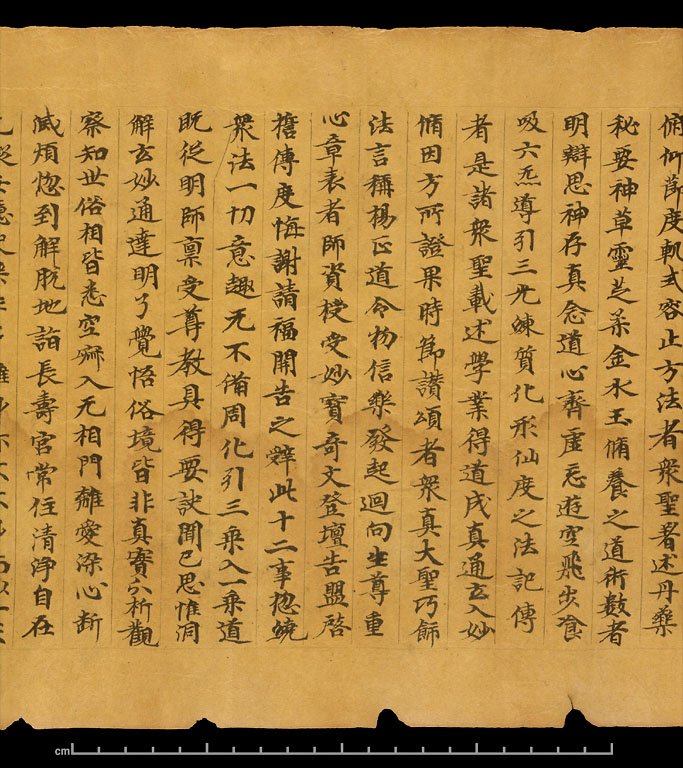 俯仰節度軌式容止方法者衆聖著述丹藥
秘要神草靈芝柔金水玉脩養之道術數者
明辯思神存真念道心齊虛忘遊空飛步飡
吸六炁導引三光鍊質化形仙度之法記傳
者是諸衆聖載述學業得道成真通玄入妙
脩因方所證果時節讚頌者衆真大聖巧飾
法言稱楊正道令物信樂發起迴向生尊重
心章表者師資授受妙寶奇文登壇告盟啓
擔傳度悔謝請福開告之辞此十二事揔統
衆法一切意趣无不備周化引三乘入一乘道
既從明師禀受尊教具得要訣聞已思惟洞
解玄妙通達明了覺悟俗境皆非真實分析觀
察知世俗相皆悉空寂入无相門離愛染心斷
滅煩惚到解脫地詣長壽宮常住清淨自在